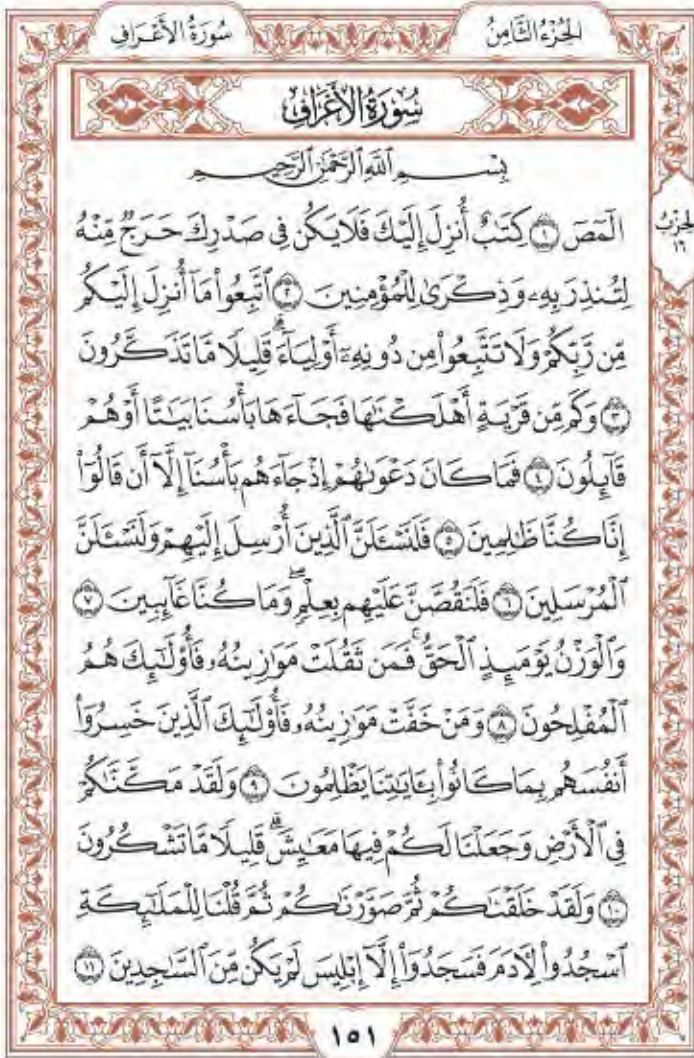 سُورَةُ الأَعْرَافِ
الجُزْءُ الثَّامِنُ
سُورَةُ الأَعْرَافِ
بِسْمِ ٱللَّهِ ٱلرَّحْمَٰنِ ٱلرَّحِيمِ
الٓمٓصٓ ١ كِتَٰبٌ أُنزِلَ إِلَيْكَ فَلَا يَكُن فِي صَدْرِكَ حَرَجٌ مِّنْهُ
لِتُنذِرَ بِهِۦ وَذِكْرَىٰ لِلْمُؤْمِنِينَ ٢ ٱتَّبِعُوا۟ مَآ أُنزِلَ إِلَيْكُم
مِّن رَّبِّكُمْ وَلَا تَتَّبِعُوا۟ مِن دُونِهِۦٓ أَوْلِيَآءَۗ قَلِيلًا مَّا تَذَكَّرُونَ
٣ وَكَم مِّن قَرْيَةٍ أَهْلَكْنَٰهَا فَجَآءَهَا بَأْسُنَا بَيَٰتًا أَوْ هُمْ
قَآئِلُونَ ٤ فَمَا كَانَ دَعْوَىٰهُمْ إِذْ جَآءَهُم بَأْسُنَآ إِلَّآ أَن قَالُوٓا۟
إِنَّا كُنَّا ظَٰلِمِينَ ٥ فَلَنَسْـَٔلَنَّ ٱلَّذِينَ أُرْسِلَ إِلَيْهِمْ وَلَنَسْـَٔلَنَّ
ٱلْمُرْسَلِينَ ٦ فَلَنَقُصَّنَّ عَلَيْهِم بِعِلْمٍۖ وَمَا كُنَّا غَآئِبِينَ ٧
وَٱلْوَزْنُ يَوْمَئِذٍ ٱلْحَقُّۚ فَمَن ثَقُلَتْ مَوَٰزِينُهُۥ فَأُو۟لَٰٓئِكَ هُمُ
ٱلْمُفْلِحُونَ ٨ وَمَنْ خَفَّتْ مَوَٰزِينُهُۥ فَأُو۟لَٰٓئِكَ ٱلَّذِينَ خَسِرُوٓا۟
أَنفُسَهُم بِمَا كَانُوا۟ بِـَٔايَٰتِنَا يَظْلِمُونَ ٩ وَلَقَدْ مَكَّنَّٰكُمْ
فِي ٱلْأَرْضِ وَجَعَلْنَا لَكُمْ فِيهَا مَعَٰيِشَۗ قَلِيلًا مَّا تَشْكُرُونَ
١٠ وَلَقَدْ خَلَقْنَٰكُمْ ثُمَّ صَوَّرْنَٰكُمْ ثُمَّ قُلْنَا لِلْمَلَٰٓئِكَةِ
ٱسْجُدُوا۟ لِـَٔادَمَ فَسَجَدُوٓا۟ إِلَّآ إِبْلِيسَ لَمْ يَكُن مِّنَ ٱلسَّٰجِدِينَ ١١
الحِزْبُ
١٦
١٥١